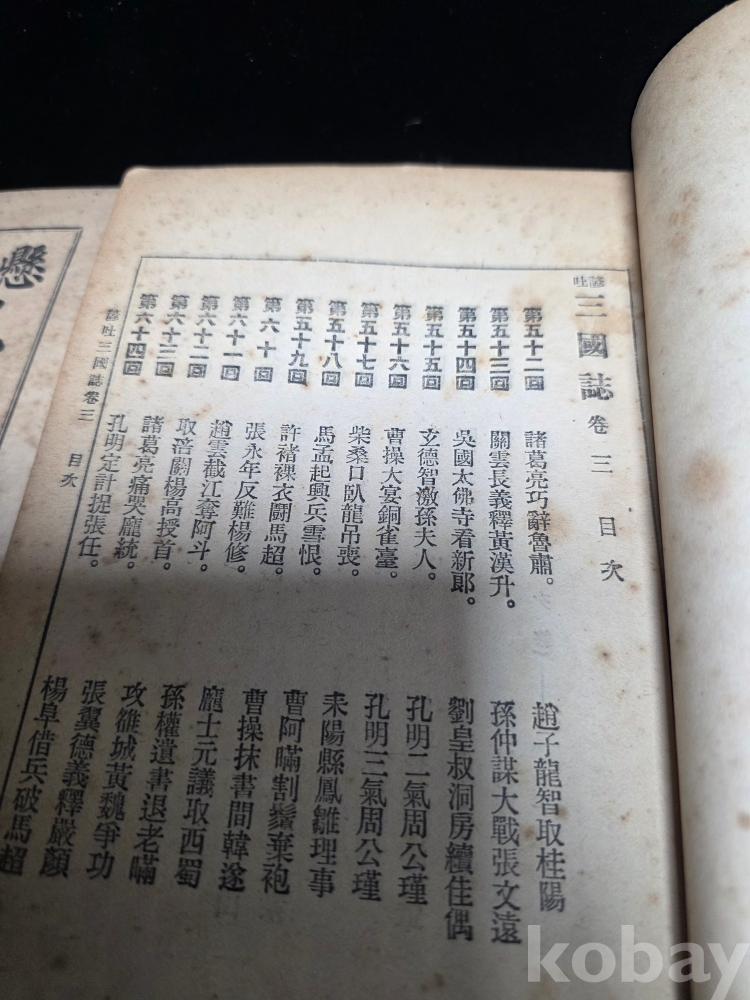 諺吐 三國誌 卷三 目次
第五十二回 諸葛亮巧辭魯肅。 趙子龍智取桂陽
第五十三回 關雲長義釋黃漢升。 孫仲謀大戰張文遠
第五十四回 吳國太佛寺看新郎。 劉皇叔洞房續佳偶
第五十五回 玄德智激孫夫人。 孔明二氣周公瑾
第五十六回 曹操大宴銅雀臺。 孔明三氣周公瑾
第五十七回 柴桑口臥龍吊喪。 耒陽縣鳳雛理事
第五十八回 馬孟起興兵雪恨。 曹阿瞞割鬚棄袍
第五十九回 許褚裸衣鬪馬超。 曹操抹書間韓遂
第六十回 張永年反難楊修。 龐士元議取西蜀
第六十一回 趙雲截江奪阿斗。 孫權遺書退老瞞
第六十二回 取涪關楊高授首。 攻雒城黃魏爭功
第六十三回 諸葛亮痛哭龐統。 張翼德義釋嚴顏
第六十四回 孔明定計捉張任。 楊阜借兵破馬超
諺吐三國誌卷三 目次
懸
kobay